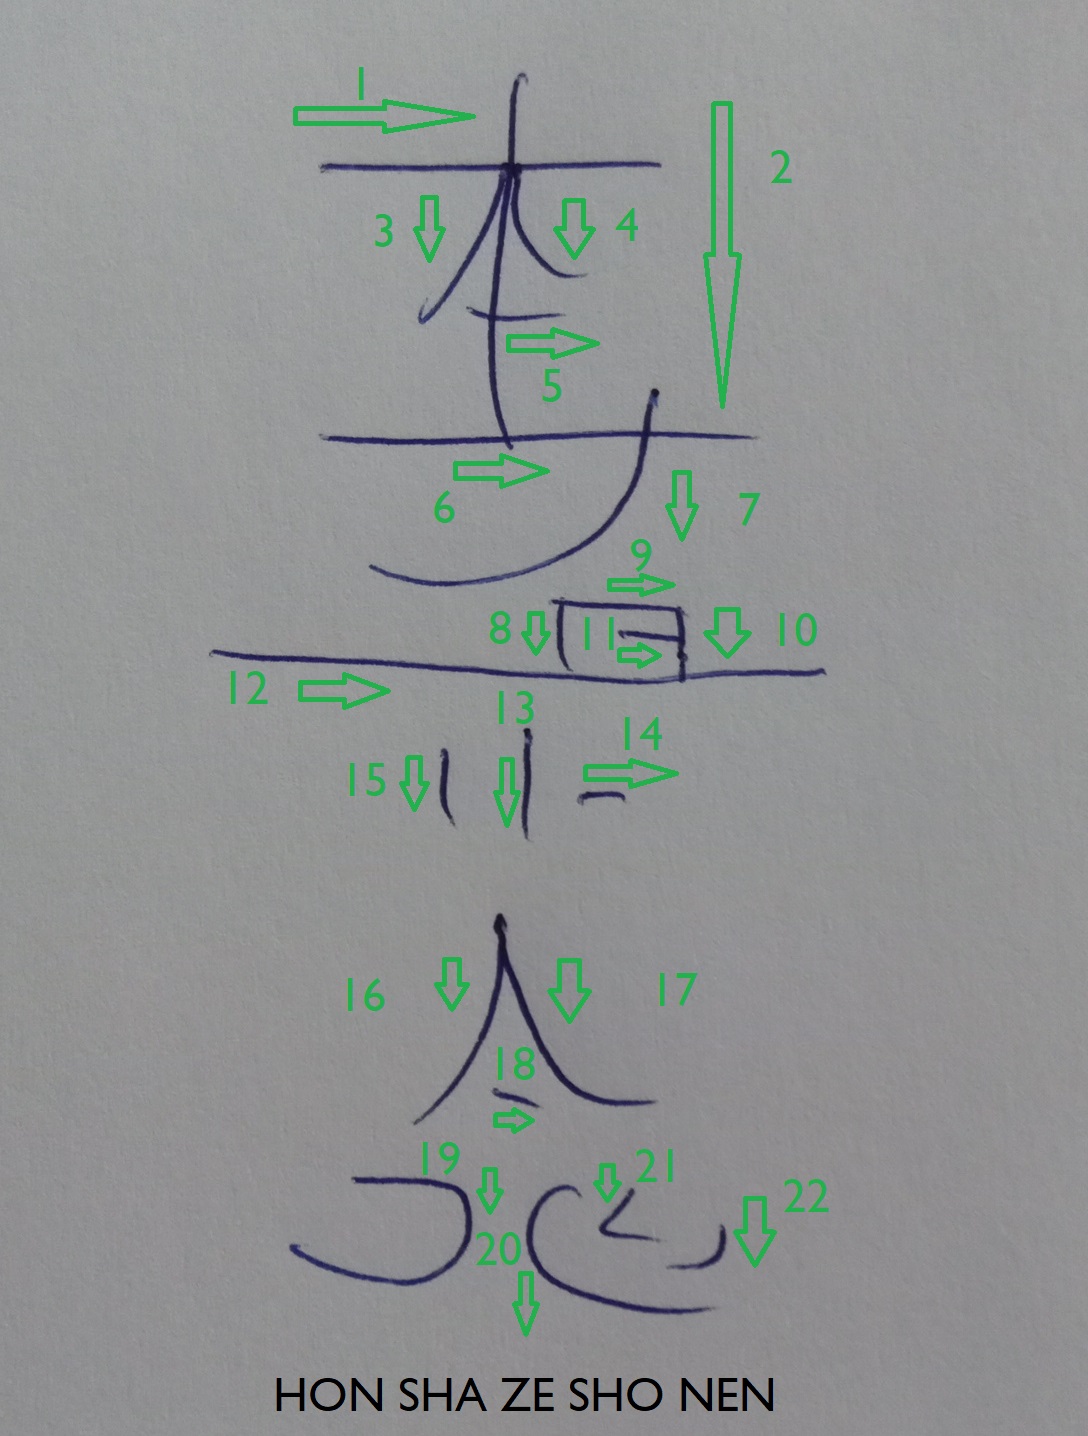 1
2
3
4
5
6
7
9
8
11
10
12
13
14
15
16
17
18
19
21
22
20
HON SHA ZE SHO NEN